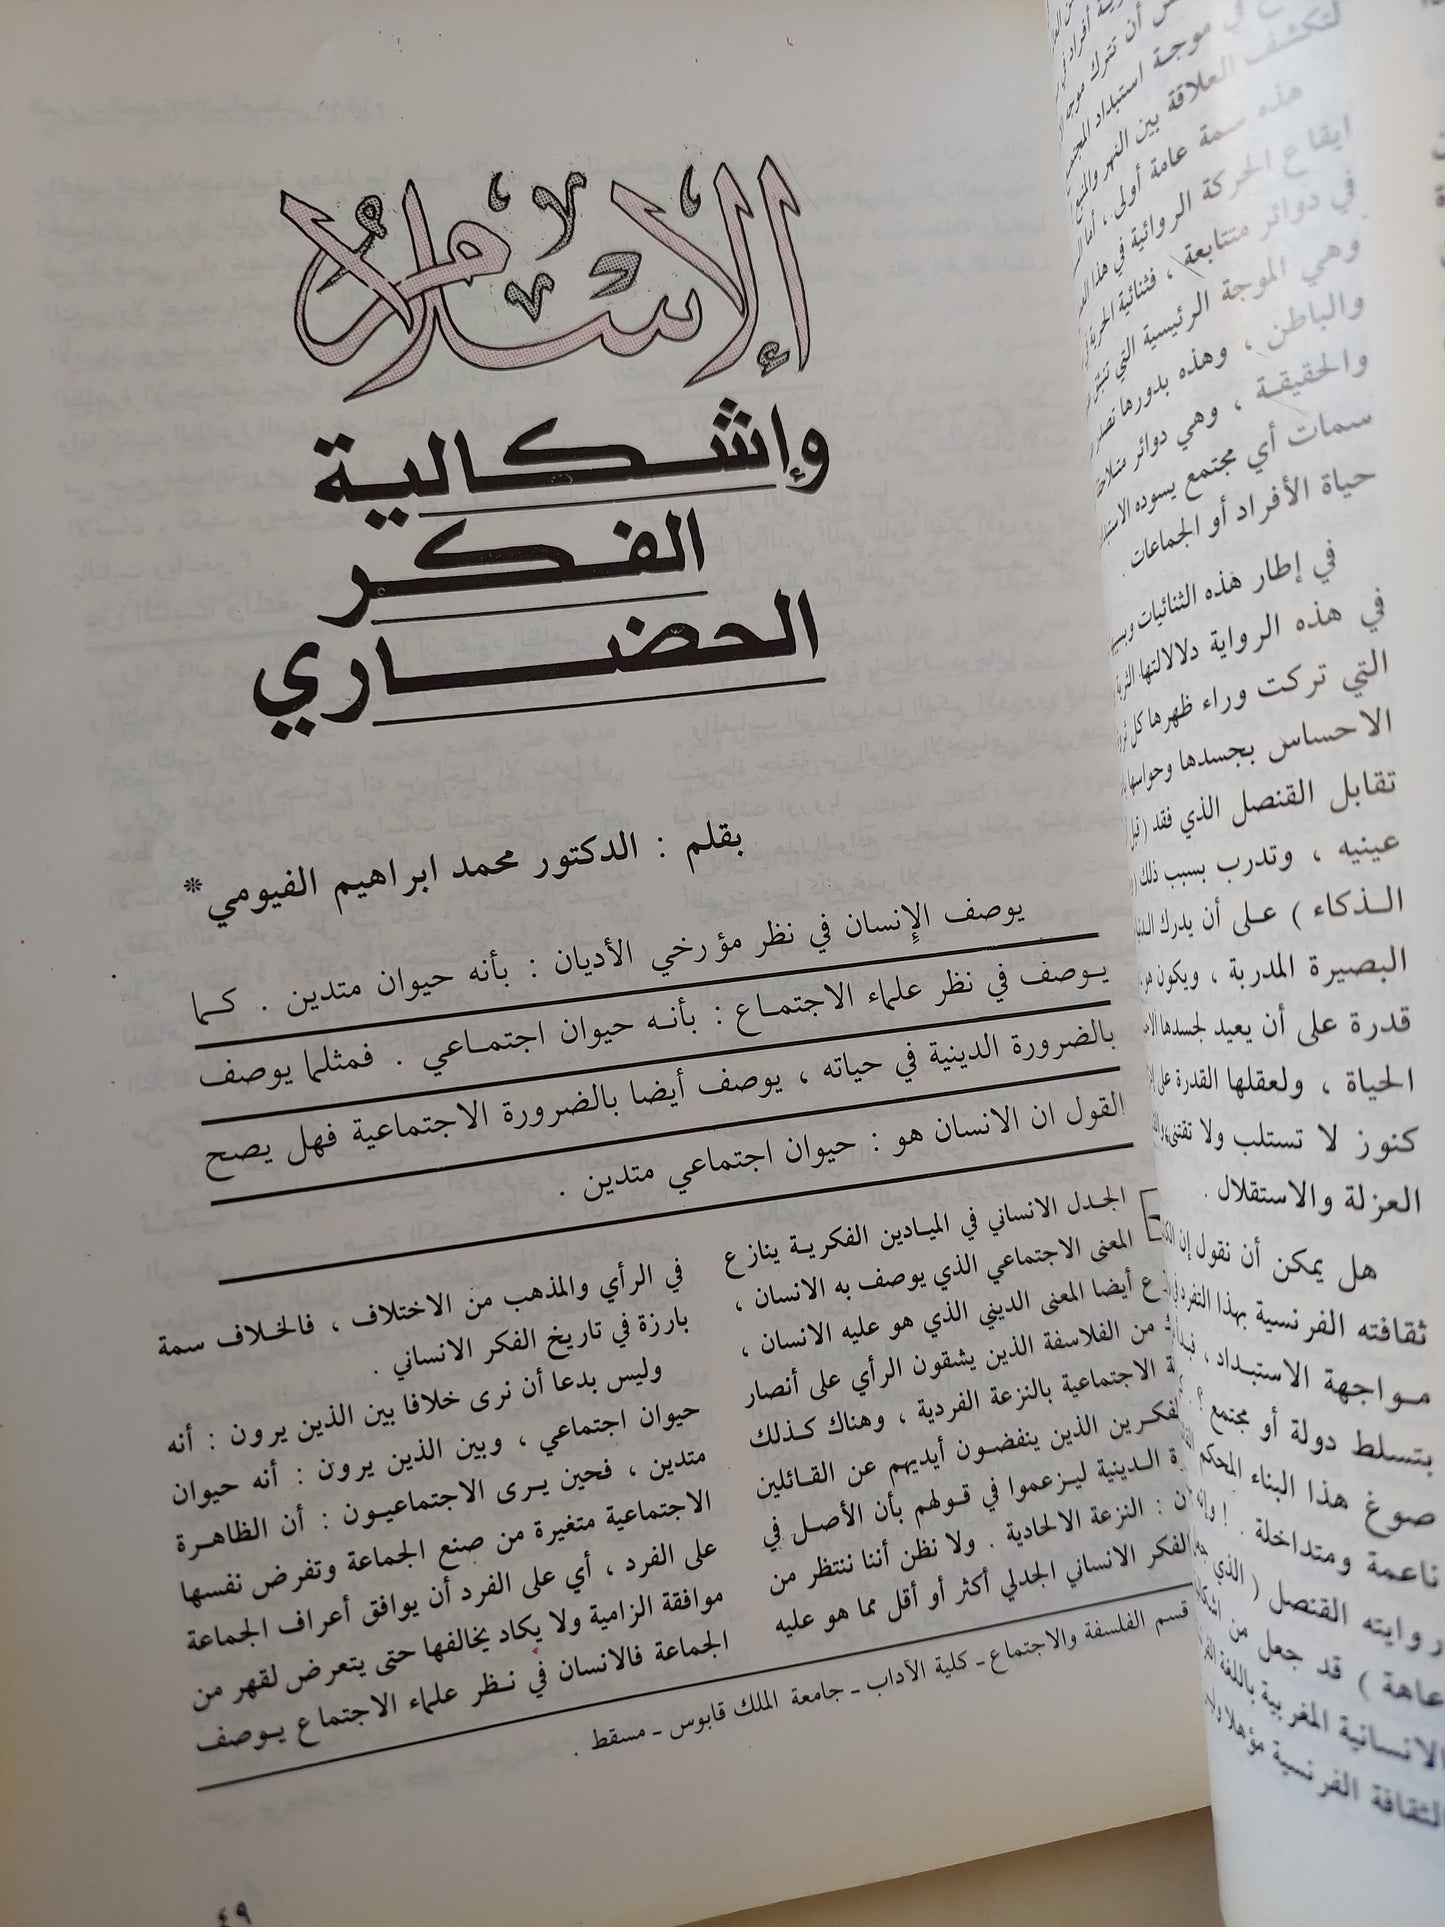 الإسلام
وإشكالية
الفكر
الحضاري
بقلم : الدكتور محمد ابراهيم الفيومي *
يوصف الإنسان في نظر مؤرخي الأديان : بأنه حيوان متدين . كما
يوصف في نظر علماء الاجتماع : بأنه حيوان اجتماعي . فمثلما يوصف
بالضرورة الدينية في حياته ، يوصف أيضا بالضرورة الاجتماعية فهل يصح
القول ان الانسان هو : حيوان اجتماعي متدين .
الجدل الانساني في الميادين الفكرية ينازع
المعنى الاجتماعي الذي يوصف به الانسان ،
أيضا المعنى الديني الذي هو عليه الانسان ،
من الفلاسفة الذين يشقون الرأي على أنصار
الاجتماعية بالنزعة الفردية ، وهناك كذلك
الذين ينفضون أيديهم عن القائلين
الدينية ليزعموا في قولهم بأن الأصل في
: النزعة الالحادية . ولا نظن أننا ننتظر من
الفكر الانساني الجدلي أكثر أو أقل مما هو عليه
في الرأي والمذهب من الاختلاف ، فالخلاف سمة
بارزة في تاريخ الفكر الانساني .
وليس بدعا أن نرى خلافا بين الذين يرون : أنه
حيوان اجتماعي ، وبين الذين يرون : أنه حيوان
متدين ، فحين يرى الاجتماعيون : أن الظاهرة
الاجتماعية متغيرة من صنع الجماعة وتفرض نفسها
على الفرد ، أي على الفرد أن يوافق أعراف الجماعة
موافقة الزامية ولا يكاد يخالفها حتى يتعرض لقهر من
الجماعة فالانسان في نظر علماء الاجتماع يوصف
قسم الفلسفة والاجتماع - كلية الآداب - جامعة الملك قابوس - مسقط .
٤٩
أن تترك موجة
في موجة استبداد
لتكشف العلاقة بين النهر والمنبع
هذه سمة عامة أولى ، أما
ايقاع الحركة الروائية في هذا
في دوائر متتابعة ، فثنائية الحرية
وهي الموجة الرئيسية التي
والباطن ، وهذه بدورها
والحقيقة ، وهي دوائر
سمات أي مجتمع يسوده
حياة الأفراد أو الجماعات .
في إطار هذه الثنائيات
في هذه الرواية دلالالتها
التي تركت وراء ظهرها كل
الاحساس بجسدها وحواسها
تقابل القنصل الذي فقد (
عينيه ، وتدرب بسبب ذلك (
الذكاء ) على أن يدرك
البصيرة المدربة ، ويكون
قدرة على أن يعيد لجسدها
الحياة ، ولعقلها القدرة على
كنوز لا تستلب ولا تقتنى
العزلة والاستقلال .
هل يمكن أن نقول إن
ثقافته الفرنسية بهذا التفرد
مواجهة الاستبداد ،
بتسلط دولة أو مجتمع ؟
صوغ هذا البناء المحكم
ناعمة ومتداخلة . !
روايته القنصل ( الذي
عاهة ) قد جعل من
الانسانية المغربية باللغة
الثقافة الفرنسية مؤهلا